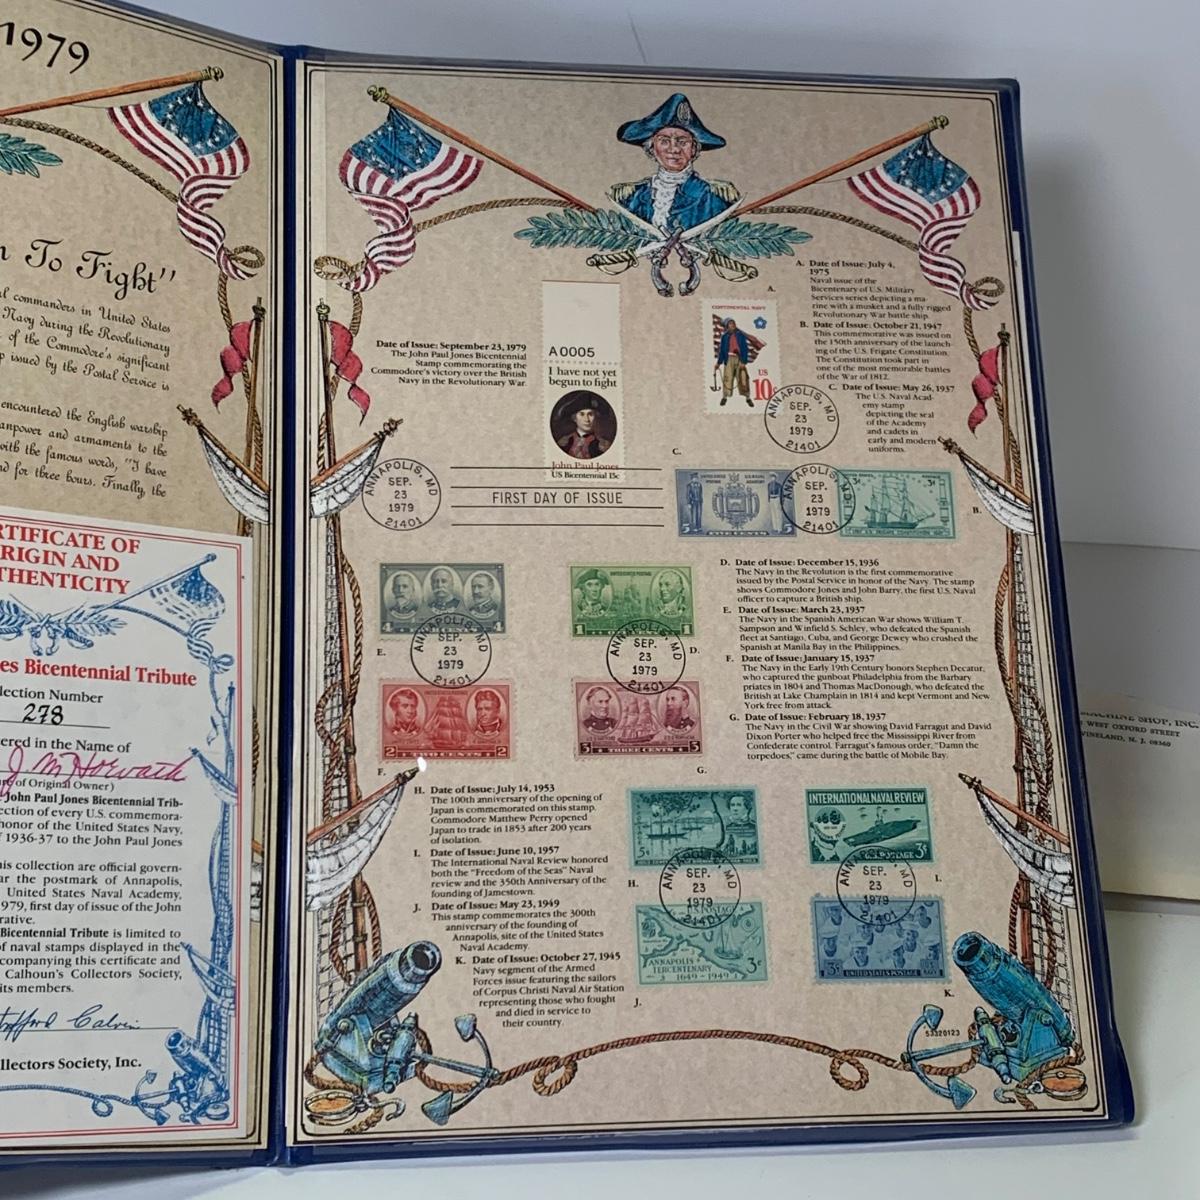 1979
To Fight"
commanders in United States
Navy during the Revolutionary
of the Commodore's significant
issued by the Postal Service is
encountered the English warship
manpower and armaments to the
with the famous words, "I have
for three hours. Finally, the
CERTIFICATE OF
ORIGIN AND
AUTHENTICITY
Bicentennial Tribute
Collection Number
278
Registered in the Name of
J M Horvath
of Original Owner)
John Paul Jones Bicentennial Trib-
of every U.S. commemora-
honor of the United States Navy,
1936-37 to the John Paul Jones
this collection are official govern-
the postmark of Annapolis,
United States Naval Academy,
1979, first day of issue of the John
Bicentennial Tribute is limited to
of naval stamps displayed in the
accompanying this certificate and
Calhoun's Collectors Society,
its members.
Stafford Calvin
Collectors Society, Inc.
Date of Issue: September 23, 1979
The John Paul Jones Bicentennial
Stamp commemorating the
Commodore's victory over the British
Navy in the Revolutionary War.
A0005
I have not yet
begun to fight
John Paul Jones
US Bicentennial 15c
A.
CONTINENTAL NAVY
US
10c
ANNAPOLIS, MD
SEP.
23
1979
21401
A. Date of Issue: July 4,
1975
Naval issue of the
Bicentenary of U.S. Military
Services series depicting a ma-
rine with a musket and a fully rigged
Revolutionary War battle ship.
B. Date of Issue: October 21, 1947
This commemorative was issued on
the 150th anniversary of the launch-
ing of the U.S. Frigate Constitution.
The Constitution took part in
one of the most memorable battles
of the War of 1812.
C. Date of Issue: May 26, 1937
The U.S. Naval Acad-
emy stamp
depicting the seal
of the Academy
and cadets in
early and modern
uniforms.
ANNAPOLIS, MD
SEP.
23
1979
21401
FIRST DAY OF ISSUE
C.
5 FIVE CENTS
ANNAPOLIS, MD
SEP.
23
1979
21401
3¢
B.
4 4
UNITED STATES POSTAGE
1 1
ANNAPOLIS, MD
SEP.
23
1979
21401
ANNAPOLIS, MD
SEP.
23
1979
21401
E.
D.
UNITED STATES POSTAGE
2 TWO CENTS 2
3 THREE CENTS 3
F.
G.
D. Date of Issue: December 15, 1936
The Navy in the Revolution is the first commemorative
issued by the Postal Service in honor of the Navy. The stamp
shows Commodore Jones and John Barry, the first U.S. Naval
officer to capture a British ship.
E. Date of Issue: March 23, 1937
The Navy in the Spanish American War shows William T.
Sampson and Winfield S. Schley, who defeated the Spanish
fleet at Santiago, Cuba, and George Dewey who crushed the
Spanish at Manila Bay in the Philippines.
F. Date of Issue: January 15, 1937
The Navy in the Early 19th Century honors Stephen Decatur,
who captured the gunboat Philadelphia from the Barbary
priates in 1804 and Thomas MacDonough, who defeated the
British at Lake Champlain in 1814 and kept Vermont and New
York free from attack.
G. Date of Issue: February 18, 1937
The Navy in the Civil War showing David Farragut and David
Dixon Porter who helped free the Mississippi River from
Confederate control. Farragut's famous order, "Damn the
torpedoes," came during the battle of Mobile Bay.
H. Date of Issue: July 14, 1953
The 100th anniversary of the opening of
Japan is commemorated on this stamp.
Commodore Matthew Perry opened
Japan to trade in 1853 after 200 years
of isolation.
I. Date of Issue: June 10, 1957
The International Naval Review honored
both the "Freedom of the Seas" Naval
review and the 350th Anniversary of the
founding of Jamestown.
J. Date of Issue: May 23, 1949
This stamp commemorates the 300th
anniversary of the founding of
Annapolis, site of the United States
Naval Academy.
K. Date of Issue: October 27, 1945
Navy segment of the Armed
Forces issue featuring the sailors
of Corpus Christi Naval Air Station
representing those who fought
and died in service to
their country.
5¢
INTERNATIONAL NAVAL REVIEW
POSTAGE 3¢
H.
I.
SEP.
23
1979
21401
SEP.
23
1979
21401
U.S. POSTAGE
ANNAPOLIS
TERCENTENARY
1649-1949
3¢
3¢ UNITED STATES POSTAGE
J.
K.
53320123
MACHINE SHOP, INC.
WEST OXFORD STREET
VINELAND, N. J. 08360